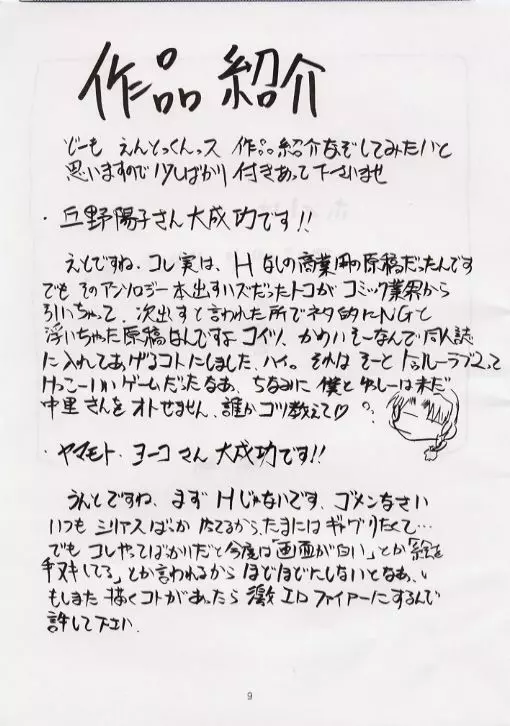 作品紹介
どーも えんとっくんっス 作品紹介なぞしてみたいと
思いますので 少しばかり 付きあって下さいませ
・丘野陽子さん大成功です!!
えとですね、コレ実は、Hなしの商業用の原稿だったんです
でも そのアンソロジー本出すハズだったトコが コミック業界から
引いちゃって、次出すと言われた所でネタ的にNGと
浮いちゃった原稿なんですよコイツ、かわいそーなんで同人誌
に入れてあげるコトにしました、ハイ。それは そーと トゥルーラブ2って
けっこーいいゲームだったなあ、ちなみに 僕と ゆしーは未だ
中里さんをオトせません、誰かコツ教えて♡
・ヤマモト・ヨーコさん大成功です!!
うんとですね、まず Hじゃないです、ゴメンなさい
いつも シリアスばっか 描てるから、たまにはギャグりたくて…
でも コレやってばかりだと今度は「画面が白い」とか「絵を
手ヌキしてる」とか言われるから ほどほどにしないとなあ、
もしまた 描くコトがあったら 激エロファイアーにするんで
許して下さい.
9